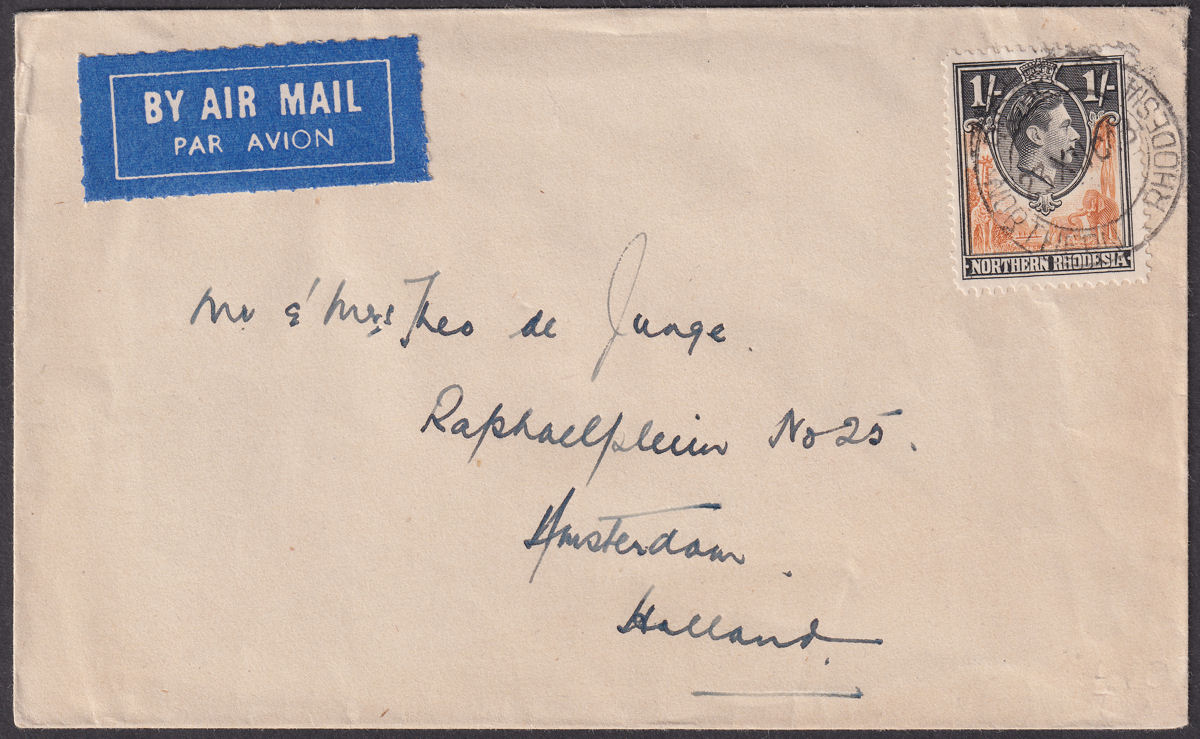 BY AIR MAIL
PAR AVION
1/- 1/-
NORTHERN RHODESIA
RHODESIA
NORTHERN
Mr & Mrs Theo de Junge.
Raphaelplein No 25.
Amsterdam.
Holland.